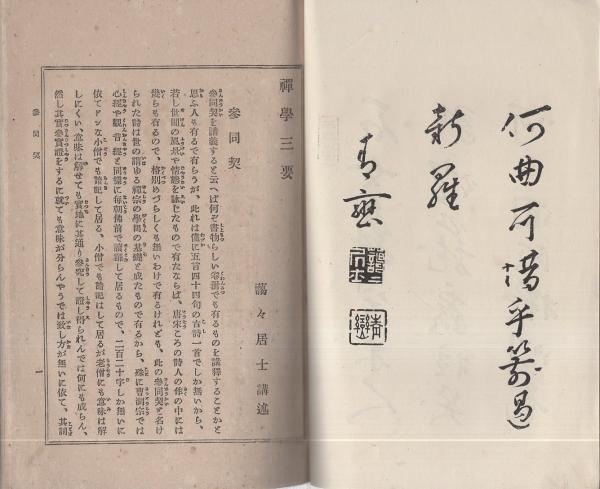 新羅
禪學三要
藹々居士講述
參同契
參同契を講義すると云へば何ぞ書物らしい卷冊でも有るものを講釋することかと
思ふ人も有るで有らうが、此れは僅に五言四十四句の古詩一首でしか無いから、
若し世間の風景や情態を詠じたもので有たならば、唐宋ころの詩人の作の中には
幾らも有るので、格別めづらしくも無いわけで有るけれども、此の參同契と名け
られた詩は世の謂ゆる禪宗の學問の基礎と成たもので有るから、殊に曹洞宗では
心經や觀音經と同樣に毎朝佛前で讀誦して居るもので、二百二十字しか無いに
依てドンな小僧でも諳記して居る、小僧でも諳記はして居るが老僧にも意味は解
しにくい、意味は解せても實地に其通り參究して證し得られんでは何にも成らん、
然し其實參實證をするに就ても意味が分らんやうでは致し方が無いに依て、其詞
參同契
一